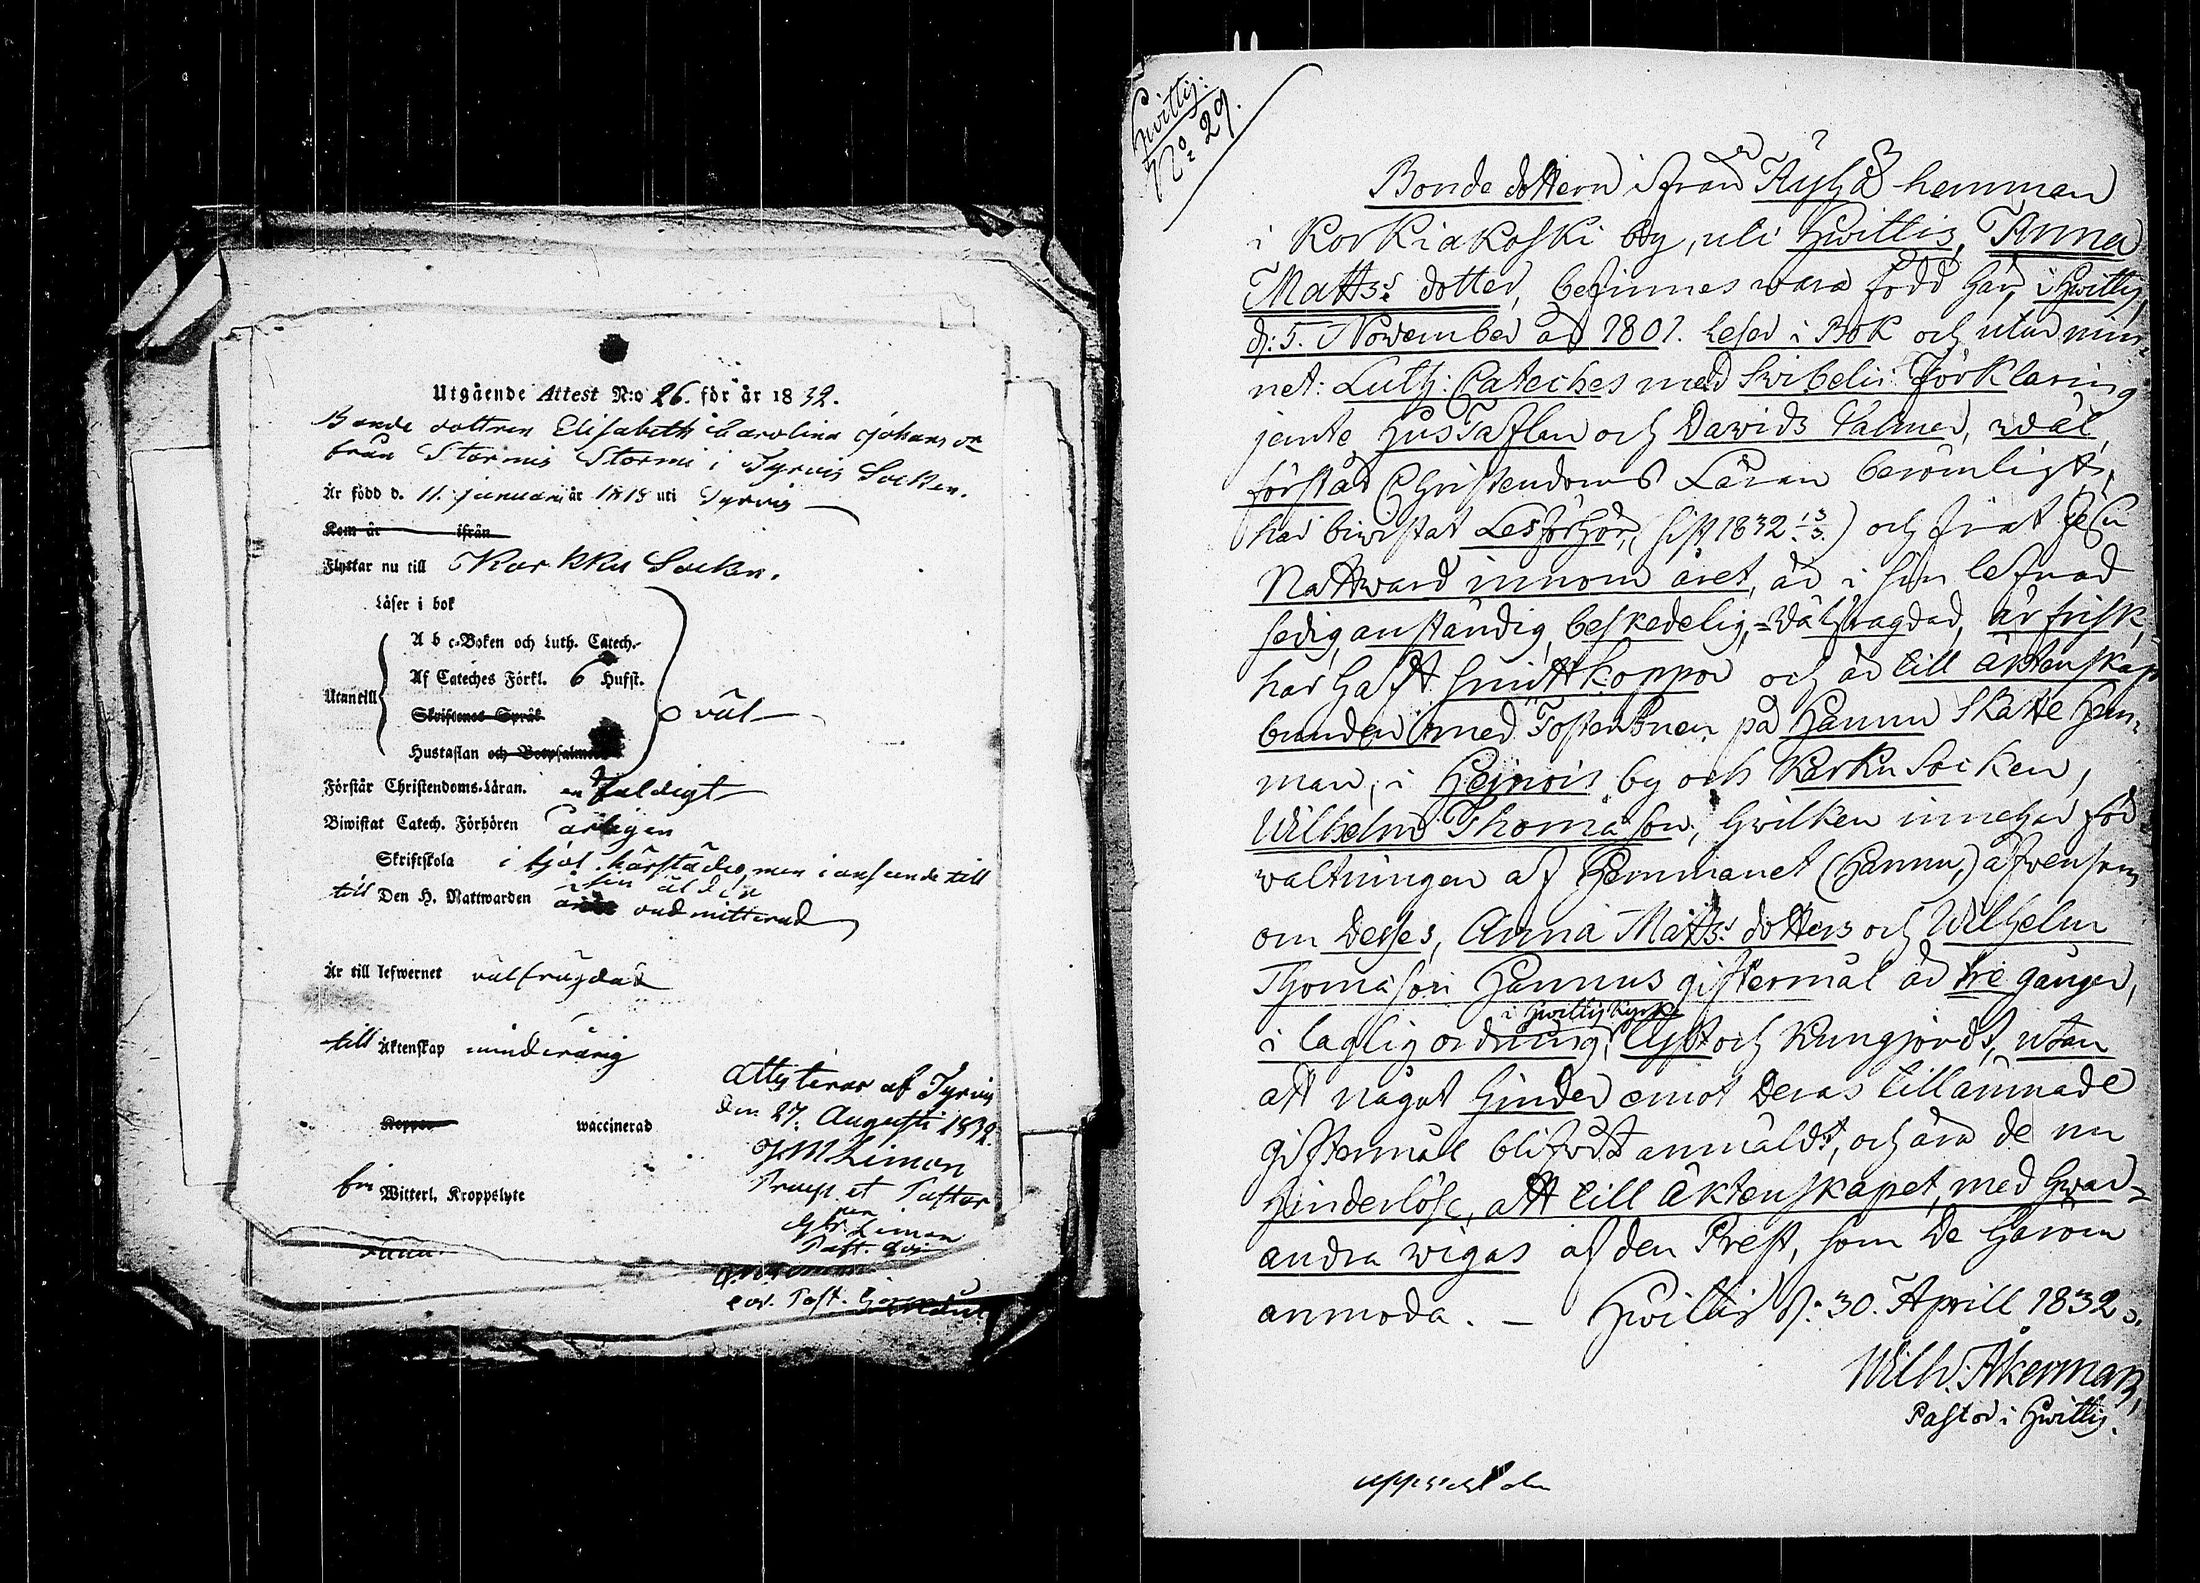 Utgående Attest N:o 26. för år 1832.
Bonde dottren Elisabeth Carolina Johans dr
från Stormis Stormi i Tyrvis Socken.
Är född d. 11. januari år 1818 uti Tyrvis
Kom år ifrån
Flyttar nu till Karkku Socken.
Läser i bok
A b c-Boken och Luth. Catech.
Af Cateches Förkl. 6 Hufst.
Utantill
Skriftenes Språk
väl
Hustaflan och Botpsalmerna
Förstår Christendoms-Läran. enfaldigt
Biwistat Catech. Förhören årligen
Skriftskola i fjol härstädes, men i anseende till
sin ålder
till Den H. Nattwarden oadmitterad
Är till lefwernet välfrägdad
till Äktenskap minderårig
Attesterar af Tyrvis
den 27. Augusti 1832.
Koppor waccinerad
J M Limon
Præp. et Pastor
fri Witterl. Kroppslyte
Limon
Past.
Hvittis:
No: 29.
Bonde dottern ifrån Kylä hemman
i Korkiakoski by, uti Hwittis, Anna
Matts: dotter, befinnes wara född här, i Hwittis,
d: 5. November år 1801. Leser i Bok och utur min-
net: Luth: Cateches med Svibelii Förklaring
jemte Hustaflan och Davids Psalmer, wäl,
förstår Christendoms Läran berömligt,
har biwistat Läsförhör, (sist 1832 13/3.) och firat Jesu
Nattward innom året, är i sin lefnad
sedig, anständig, beskedelig, wälfragdad, är frisk,
har haft smittkoppor och är till äktenskap
bunden med Fosterdrengen på Hannu Skatte Hem-
man, i Heinois by och Karku Socken,
Wilhelm Thomasson, hwilken innehar för
waltningen af Hemmanet (Hannu,) äfwensom
om Desses, Anna Matts: dotters och Wilhelm
Thomasson Hannus giftermål är tre gånger,
i Hwittis kyrka
i laglig ordning, lyst och kungjordt, utan
att något hinder emot Deras tillämnade
giftermål blifvit anmäldt, och äro de nu
hinderlöse, att till äktenskapet, med hwar-
andra wigas af den Prest, som De härom
anmoda. – Hwittis d: 30. Aprill 1832.
Wilh. Åkerman,
Pastor i Hwittis.